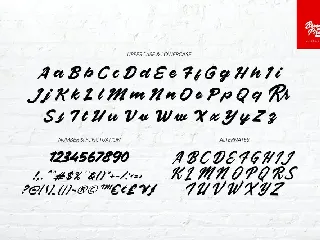 UPPERCASE & LOWERCASE
A a B b C c D d E e F f G g H h I i
J j K k L l M m N n O o P p Q q R r
S s T t U u V v W w X x Y y Z z
NUMBER & PUNCTUATION
1234567890
ALTERNATES
A B C D E F G H I J
K L M N O P Q R S
T U V W X Y Z